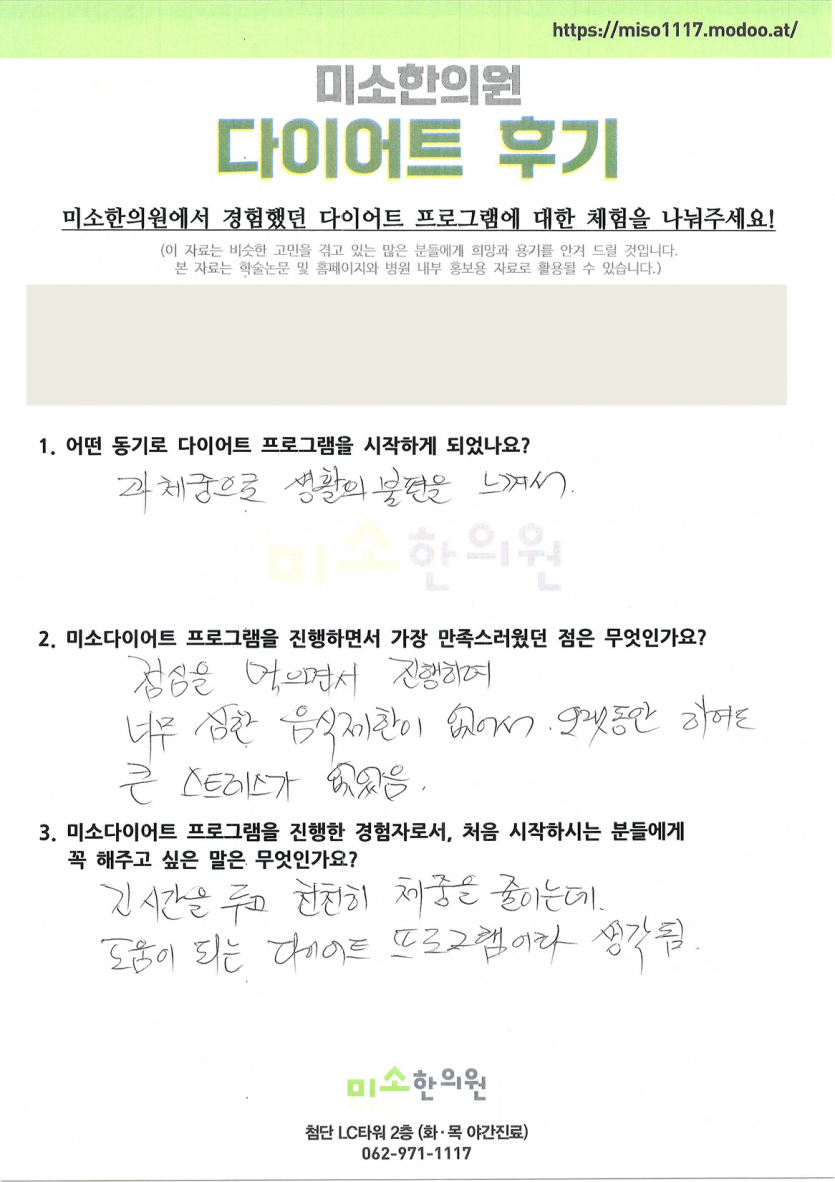 https://miso1117.modoo.at/
미소한의원
다이어트 후기
미소한의원에서 경험했던 다이어트 프로그램에 대한 체험을 나눠주세요!
(이 자료는 비슷한 고민을 겪고 있는 많은 분들에게 희망과 용기를 안겨 드릴 것입니다.
본 자료는 학술논문 및 홈페이지와 병원 내부 홍보용 자료로 활용될 수 있습니다.)
1. 어떤 동기로 다이어트 프로그램을 시작하게 되었나요?
과체중으로 생활의 불편을 느껴서.
미소한의원
2. 미소다이어트 프로그램을 진행하면서 가장 만족스러웠던 점은 무엇인가요?
점심을 먹으면서 진행하여
너무 심한 음식제한이 없어서. 오랫동안 하여도
큰 스트레스가 없었음.
3. 미소다이어트 프로그램을 진행한 경험자로서, 처음 시작하시는 분들에게
꼭 해주고 싶은 말은 무엇인가요?
긴 시간을 두고 천천히 체중을 줄이는데.
도움이 되는 다이어트 프로그램이라 생각됨.
미소한의원
첨단 LC타워 2층 (화·목 야간진료)
062-971-1117